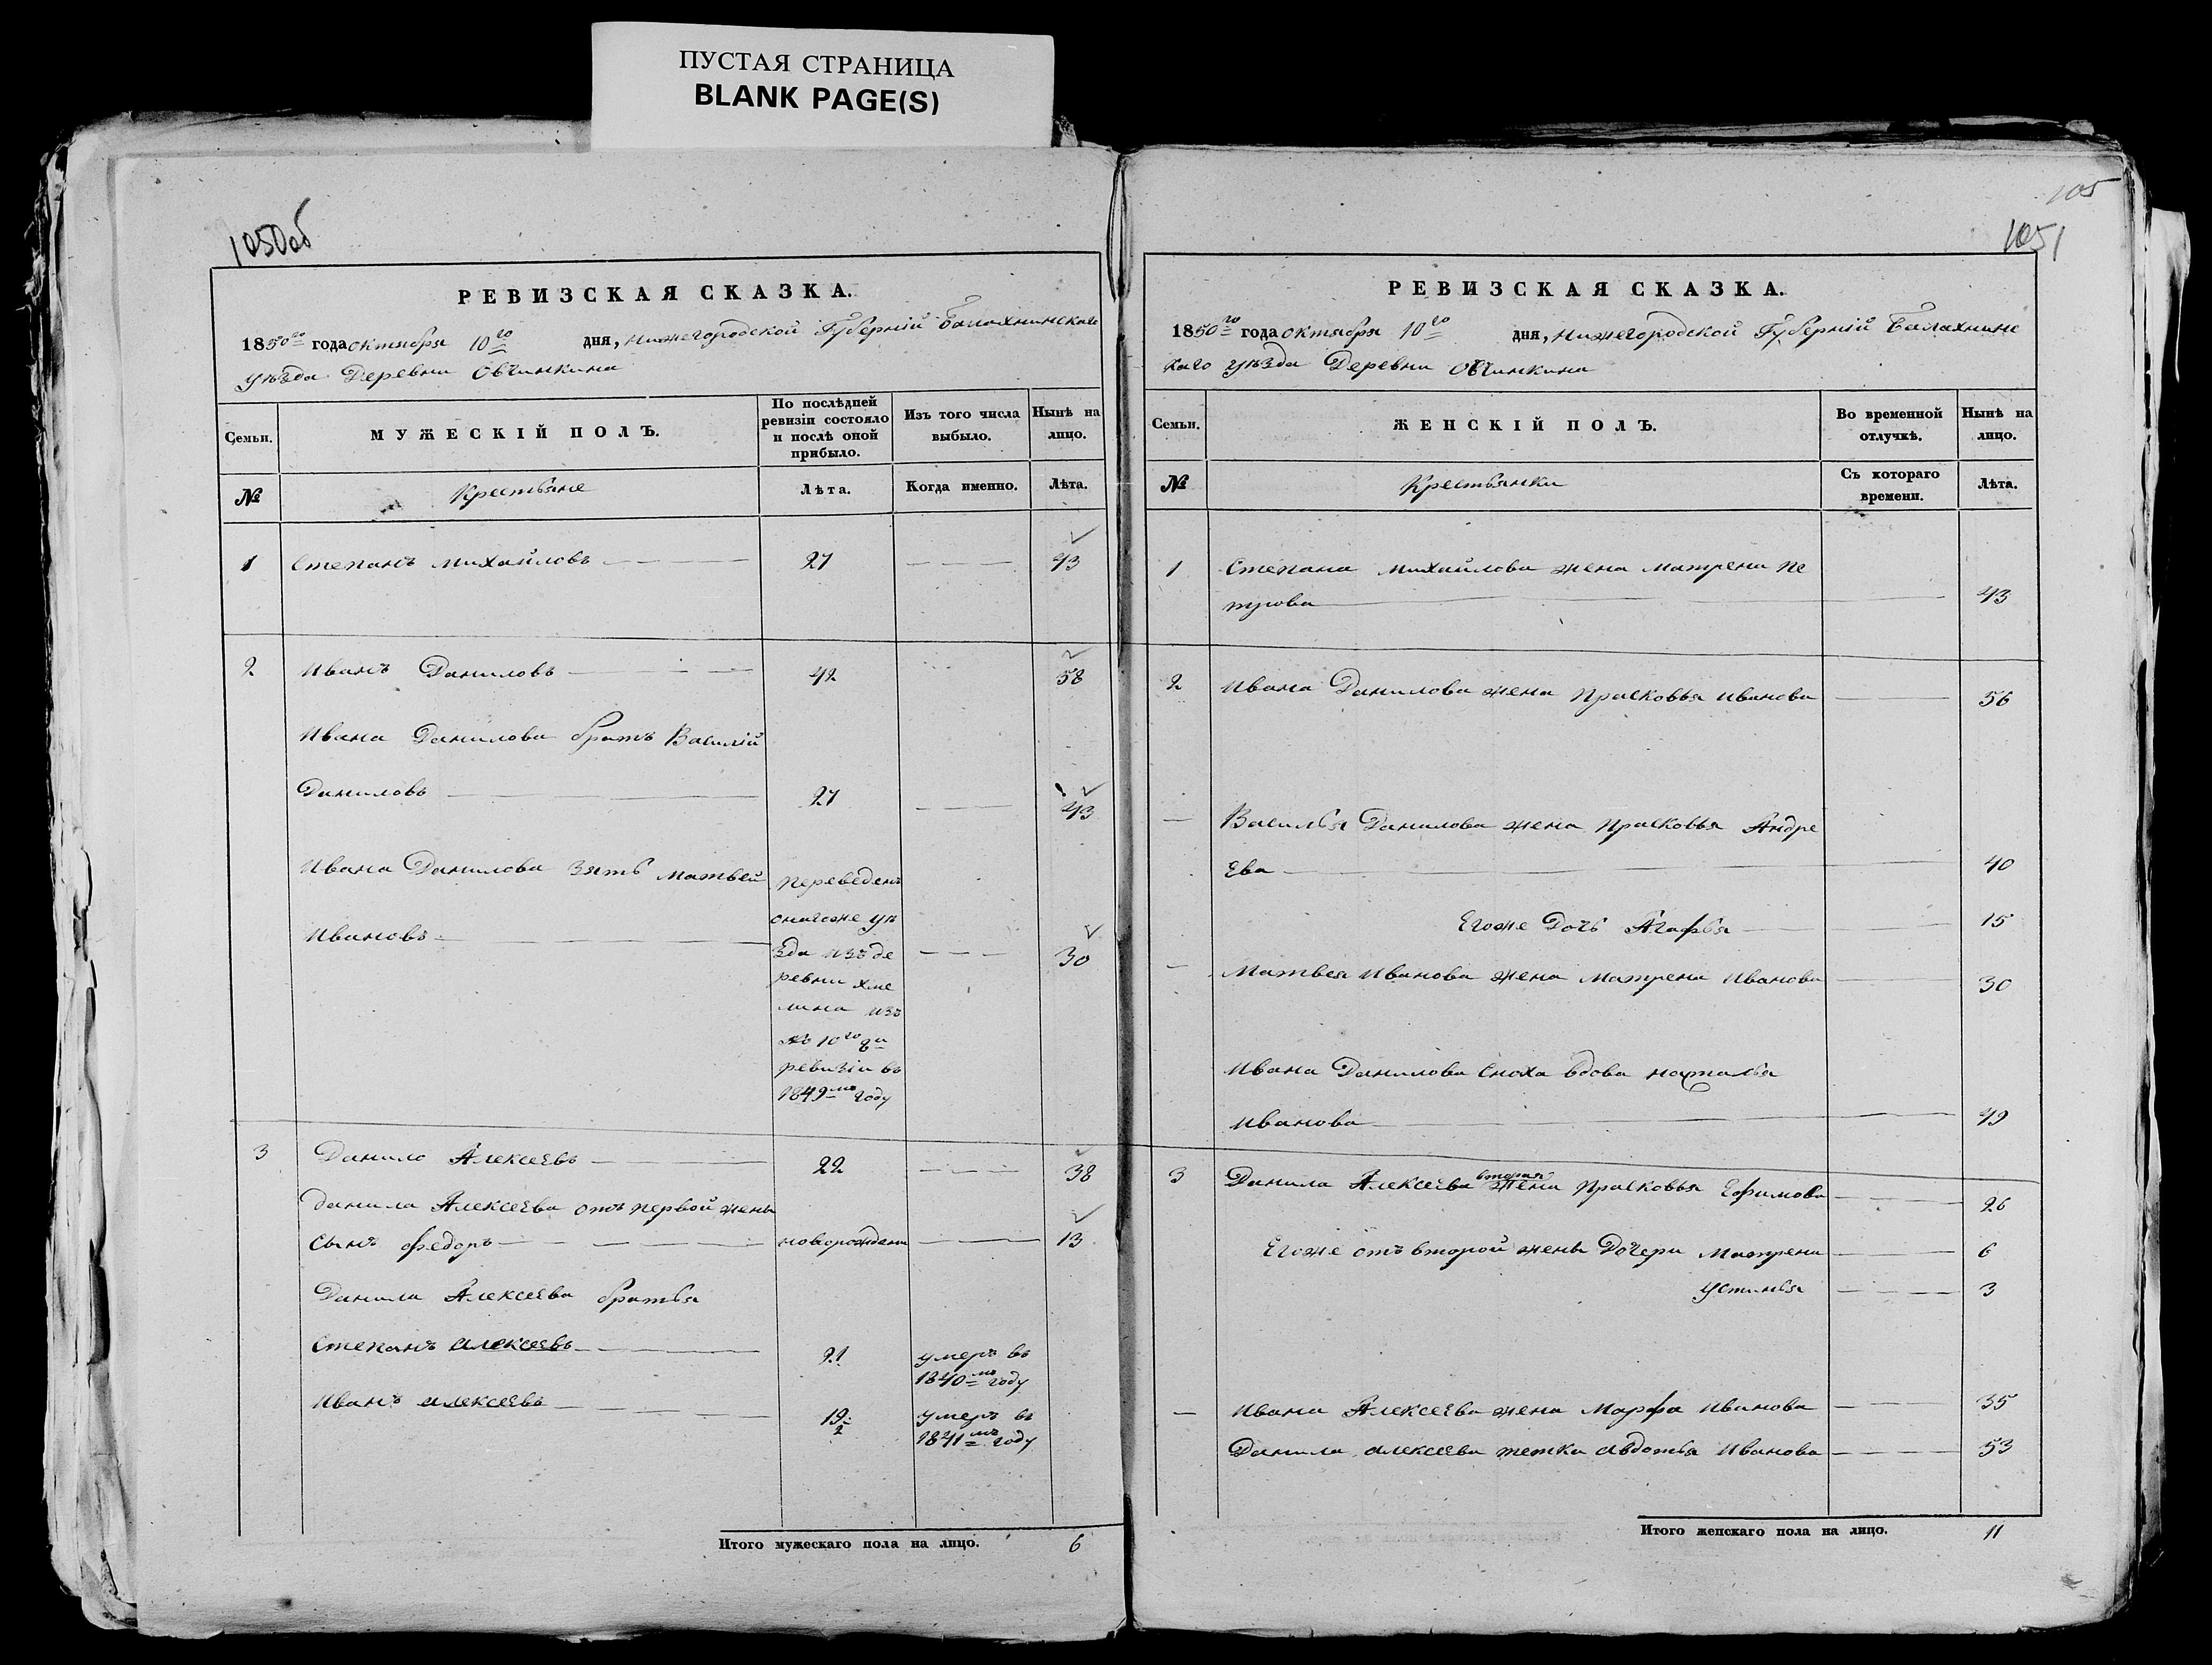 ПУСТАЯ СТРАНИЦА
BLANK PAGE(S)
1050об
РЕВИЗСКАЯ СКАЗКА.
1850го года октября 10го дня, Нижегородской Губерній Балахнинскаго
уѣзда Деревни Овчинкина
Семьи.
МУЖЕСКІЙ ПОЛЪ.
По послѣдней
ревизіи состояло
и послѣ оной
прибыло.
Изъ того числа
выбыло.
Нынѣ на
лицо.
№
Крестьяне
Лѣта.
Когда именно.
Лѣта.
1 Степанъ Михайловъ 27 43
2 Иванъ Даниловъ 42 58
Ивана Данилова братъ Василій
Даниловъ 27 43
Ивана Данилова зять Матвей переведенъ
онагоже уѣ
Ивановъ
зда изъ де 30
ревни Хме
лина изъ
ревизіи въ
1849мъ году
3 Данило Алексеевъ 22 38
Данила Алексеева отъ первой жены
сынъ Федоръ новорожденъ 13
Данила Алексеева братья
Степанъ Алексеевъ 21 умеръ въ
1840мъ году
Иванъ Алексеевъ 19 1/2 умеръ въ
1841мъ году
Итого мужескаго пола на лицо. 6
105
1051
РЕВИЗСКАЯ СКАЗКА.
1850го года октября 10го дня, Нижегородской Губерній Балахнинс
каго уѣзда Деревни Овчинкина
Семьи.
ЖЕНСКІЙ ПОЛЪ.
Во временной
отлучкѣ.
Нынѣ на
лицо.
№
Крестьянки
Съ котораго
времени.
Лѣта.
1 Степана Михайлова жена Матрена Пе
трова 43
2 Ивана Данилова жена Прасковья Иванова 56
Василья Данилова жена Прасковья Андре
ева 40
Егоже дочь Агафья 15
Матвея Иванова жена Матрена Иванова 30
Ивана Данилова сноха вдова Наталья
Иванова 49
3 Данила Алексеева вторая жена Прасковья Ефимова 26
Егоже отъ второй жены Дочери Матрена 6
Устинья 3
Ивана Алексеева жена Марфа Иванова 35
Данила Алексеева тетка Авдотья Иванова 53
Итого женскаго пола на лицо. 11